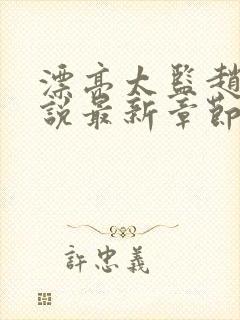 漂亮太監趙
説最新章節
許忠義